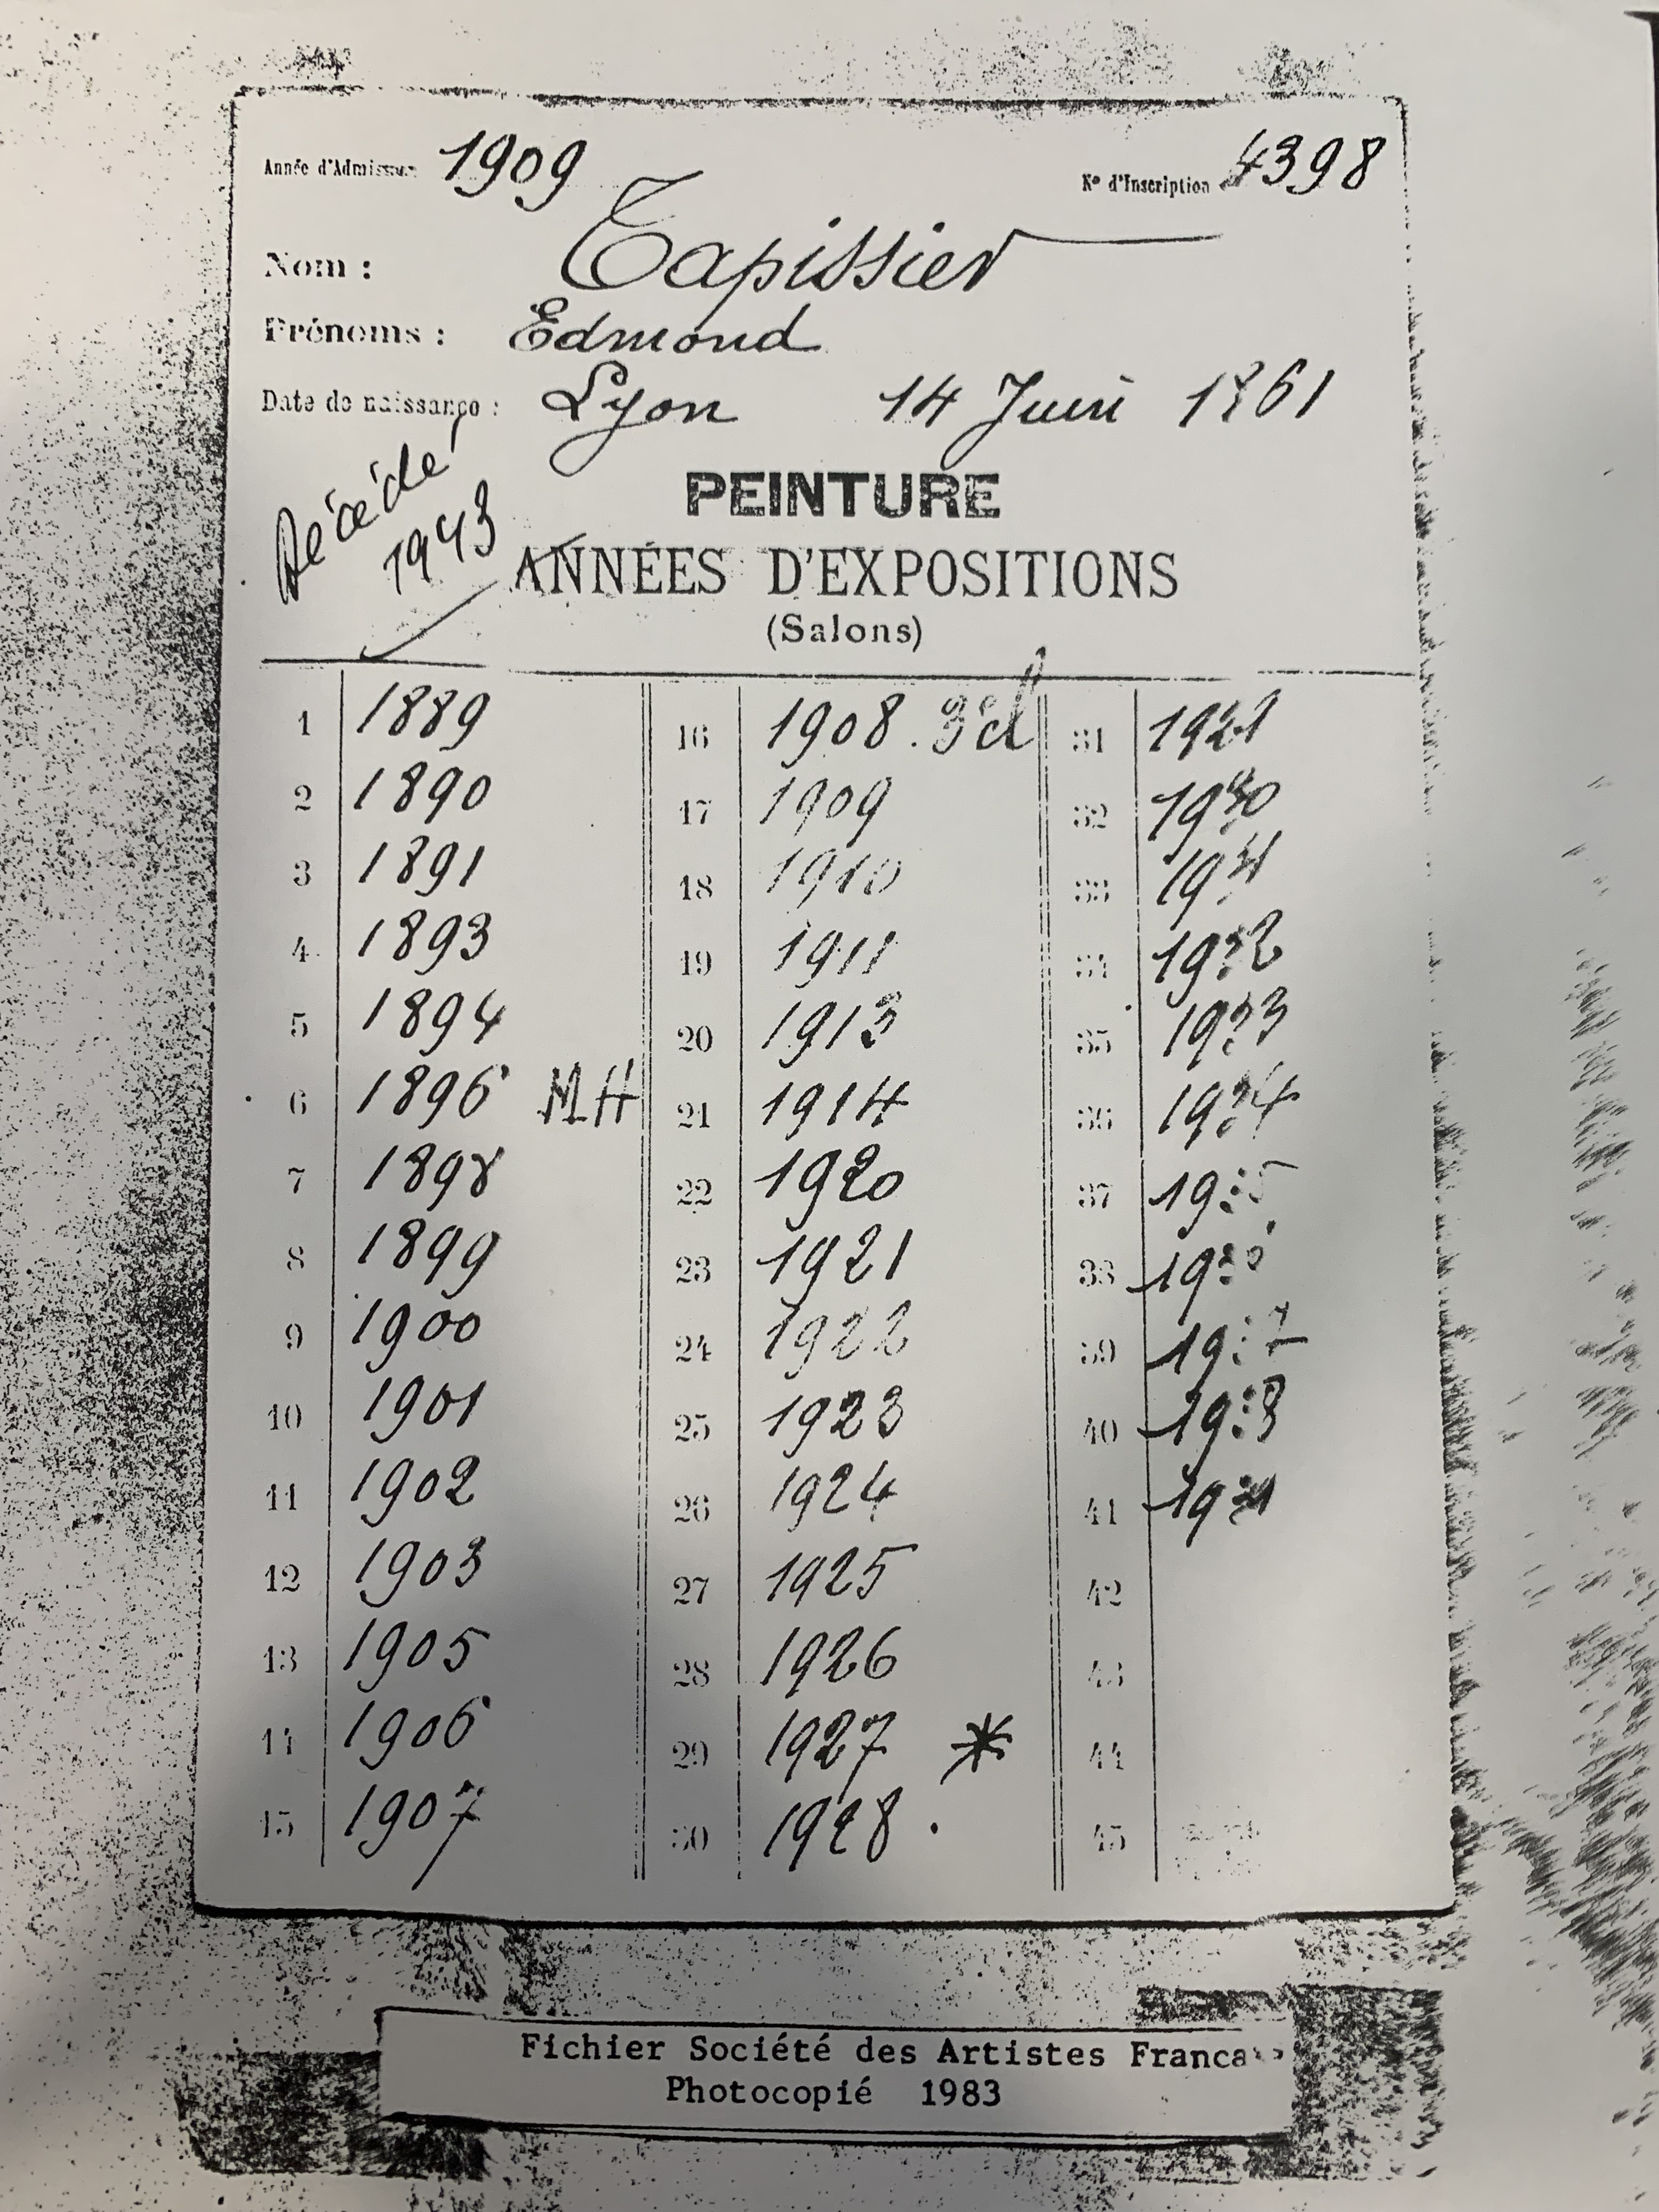 Année d'Admission 1909 N° d'Inscription 4398
Nom : Tapissier
Prénoms : Edmond
Date de naissance : Lyon 14 Juin 1861
Décédé
1943
PEINTURE
ANNÉES D'EXPOSITIONS
(Salons)
1 1889
2 1890
3 1891
4 1893
5 1894
6 1896 MH
7 1898
8 1899
9 1900
10 1901
11 1902
12 1903
13 1905
14 1906
15 1907
16 1908.
17 1909
18 1910
19 1911
20 1913
21 1914
22 1920
23 1921
24 1922
25 1923
26 1924
27 1925
28 1926
29 1927 *
30 1928.
31
32
33
34 1932
35 1933
36 1934
37 1935
38
39 1937
40 1938
41
42
43
44
45
Fichier Société des Artistes Franca
Photocopié 1983